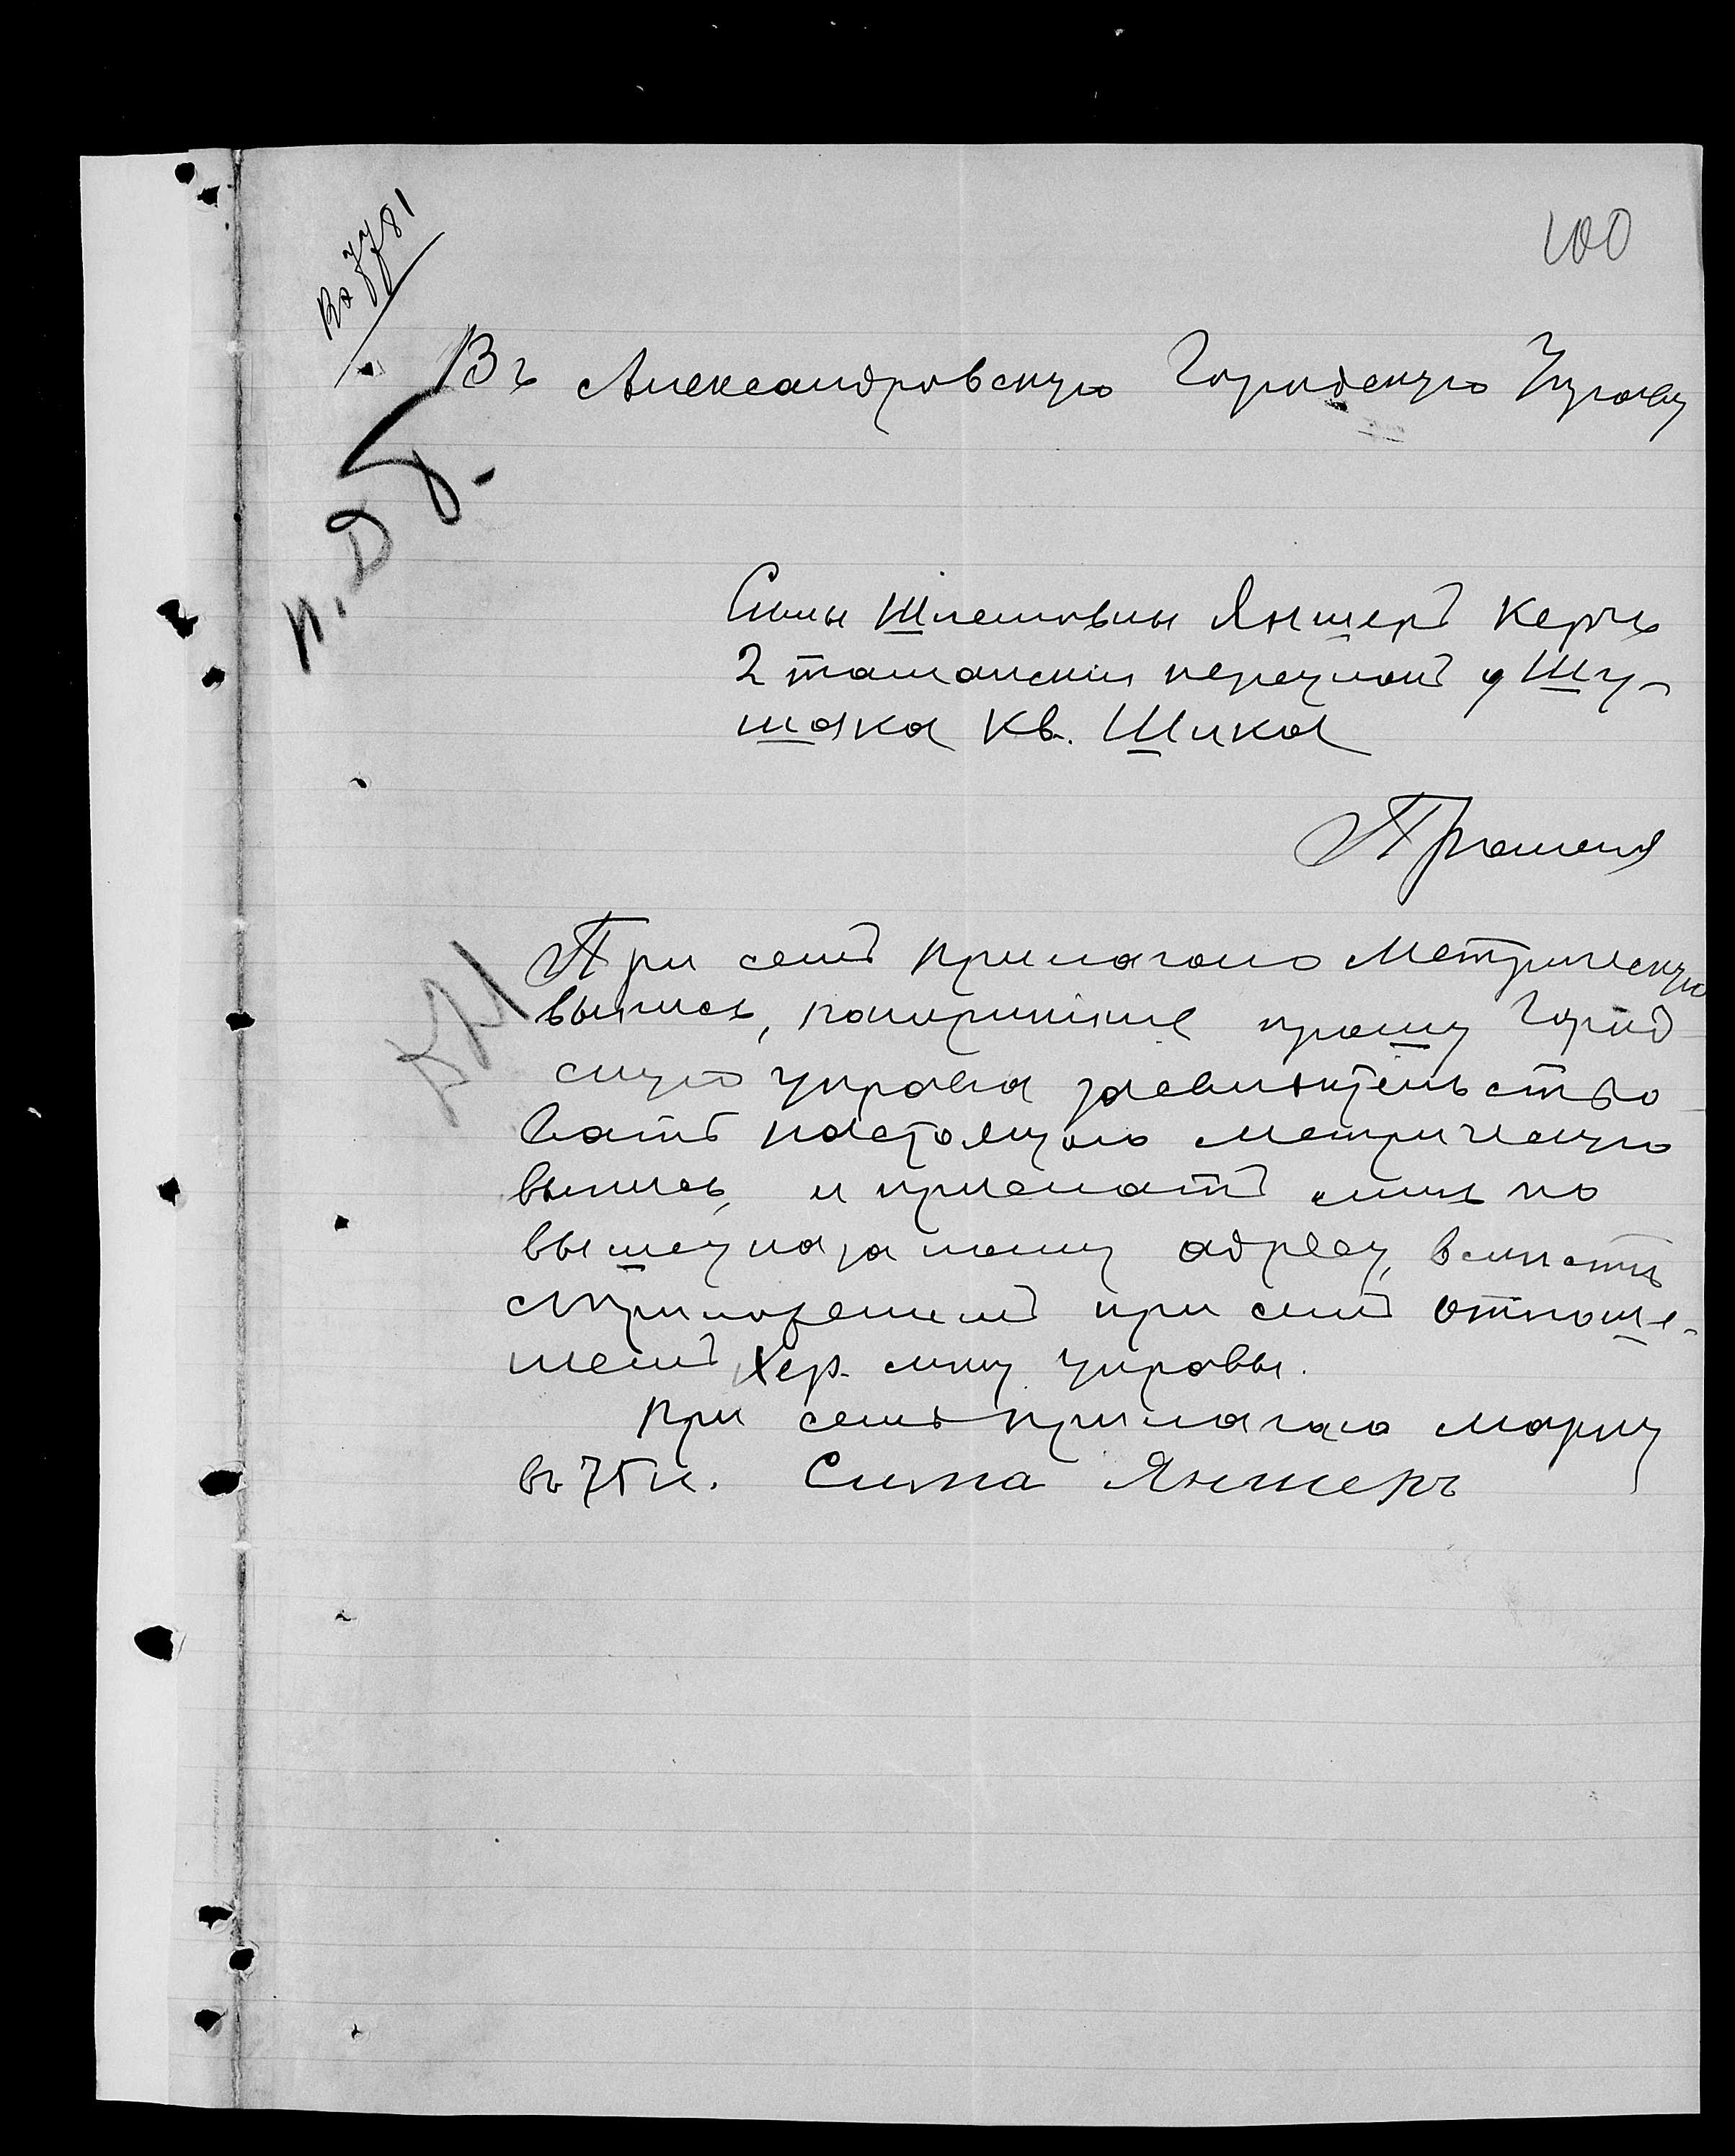 100
Вх 7781
Въ Александровскую Городскую Управу
п. Д
Симы Шлемовны Яншеръ Керчь
2 таманский переулокъ у Шу-
шака кв. Шика
Прошения
При семъ прилагаю Метрическую
выпись, покорнейше прошу Город
скую управа засвидетельство
вать настоящую метрическую
выпись, и прислать мнѣ по
вышеуказаному адресу, вмисти
с приложением при семъ отноше-
нием Кер. мищ управы.
При семъ прилагаю марку
въ 75 к. Сима Яншеръ